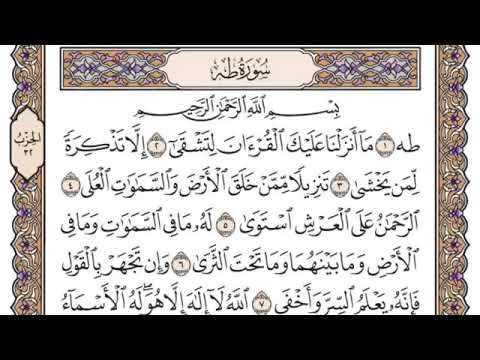 سُورَةُ طه
بِسْمِ اللَّهِ الرَّحْمَٰنِ الرَّحِيمِ
الحِزْبُ
٣٢
طه ١ مَا أَنزَلْنَا عَلَيْكَ الْقُرْءَانَ لِتَشْقَىٰ ٢ إِلَّا تَذْكِرَةً
لِّمَن يَخْشَىٰ ٣ تَنزِيلًا مِّمَّنْ خَلَقَ الْأَرْضَ وَالسَّمَٰوَٰتِ الْعُلَى ٤
الرَّحْمَٰنُ عَلَى الْعَرْشِ اسْتَوَىٰ ٥ لَهُ مَا فِي السَّمَٰوَٰتِ وَمَا فِي
الْأَرْضِ وَمَا بَيْنَهُمَا وَمَا تَحْتَ الثَّرَىٰ ٦ وَإِن تَجْهَرْ بِالْقَوْلِ
فَإِنَّهُ يَعْلَمُ السِّرَّ وَأَخْفَى ٧ اللَّهُ لَا إِلَٰهَ إِلَّا هُوَ لَهُ الْأَسْمَاءُ